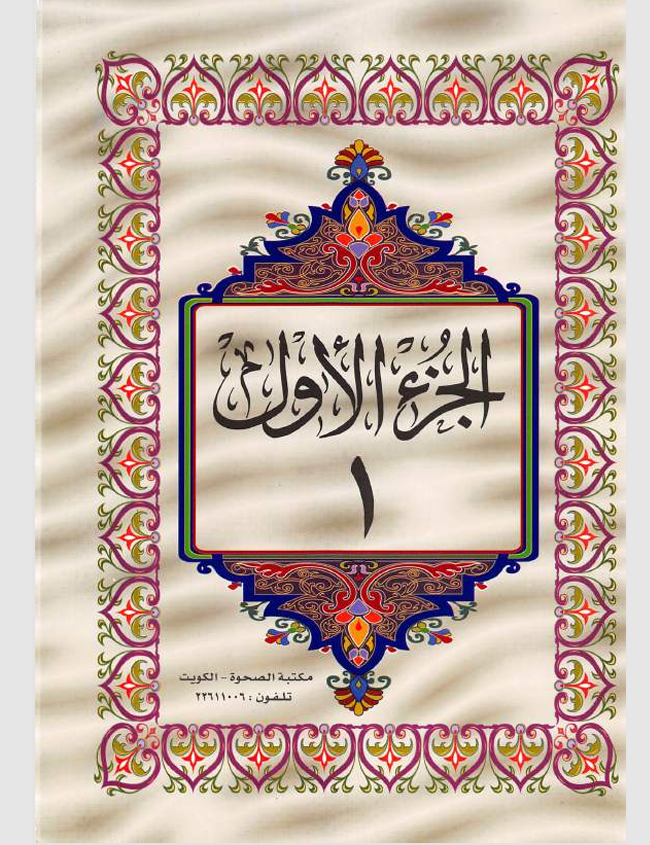 الجُزْءُ الأَوْلْ
١
مكتبة الصحوة - الكويت
تلفون : ٢٢٦١١٠٠٦